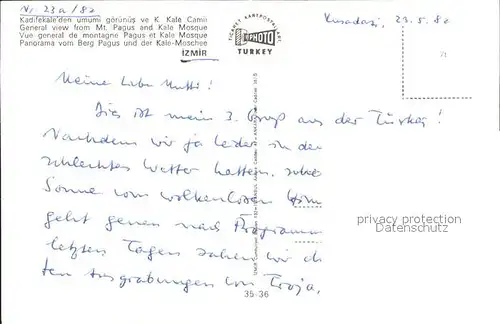 Nr. 23a/82
Kadifekale'den umumi görünüş ve K. Kale Camii
General view from Mt. Pagus and Kale Mosque
Vue general de montagne Pagus et Kale Mosque
Panorama vom Berg Pagus und der Kale-Moschee
İZMİR
TICARET KARTPOSTALLARI
PHOTO
TURKEY
Kusadasi, 23.5.82
Meine liebe Mutti!
Dies ist mein 3. Gruß aus der Türkei!
Nachdem wir ja leider in der
schlechtes Wetter hatten,
Sonne vom wolkenlosen
geht genau nach Programm
letzten Tagen sahen wir di
ten Ausgrabungen von Troja,
35-36
privacy protection
Datenschutz